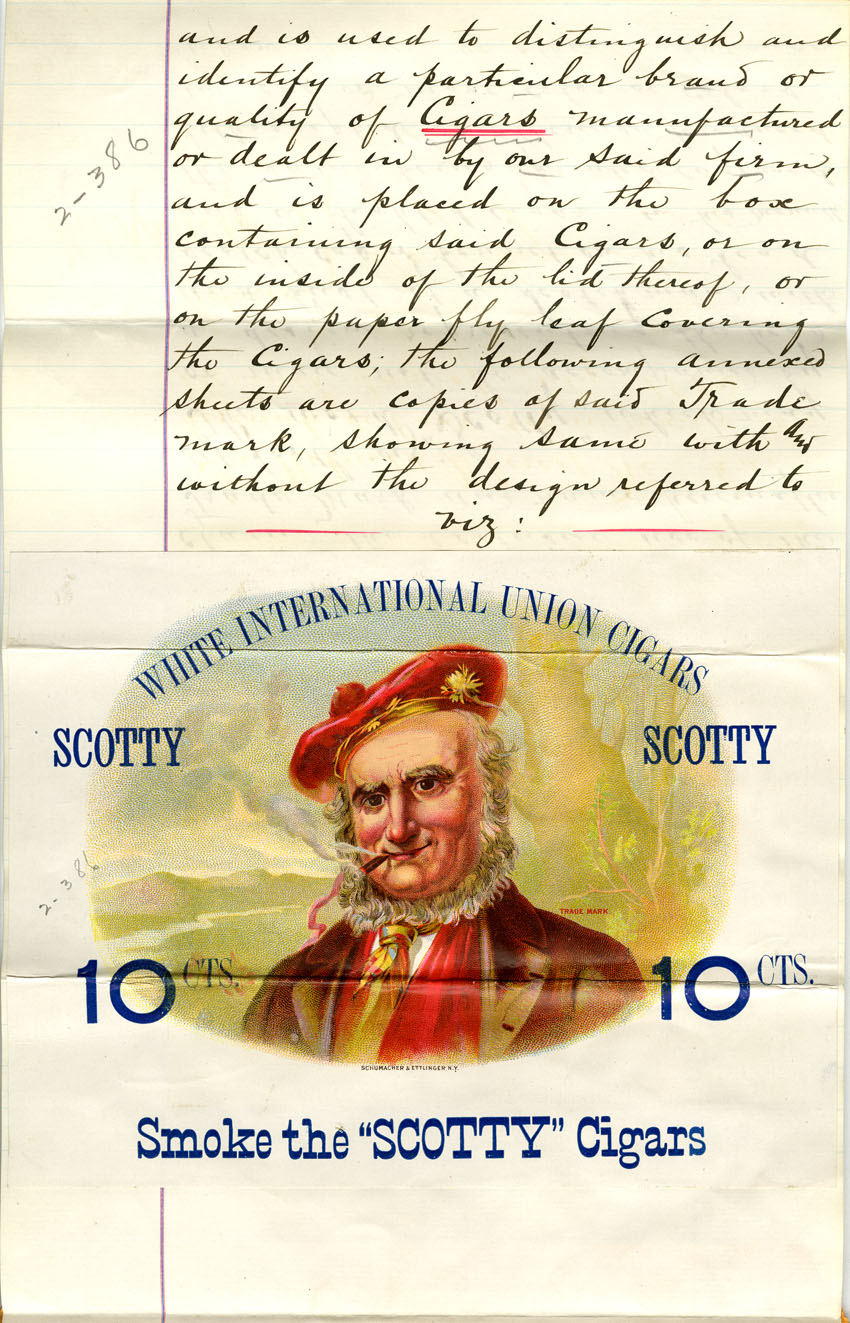 and is used to distinguish and
identify a particular brand or
quality of Cigars manufactured
or dealt in by our said firm,
and is placed on the box
containing said Cigars, or on
the inside of the lid thereof, or
on the paper fly leaf covering
the Cigars; the following annexed
sheets are copies of said Trade
mark, showing same with and
without the design referred to
viz:
2-386
WHITE INTERNATIONAL UNION CIGARS
SCOTTY
SCOTTY
2-386
TRADE MARK
10 CTS.
10 CTS.
SCHUMACHER & ETTLINGER N.Y.
Smoke the "SCOTTY" Cigars